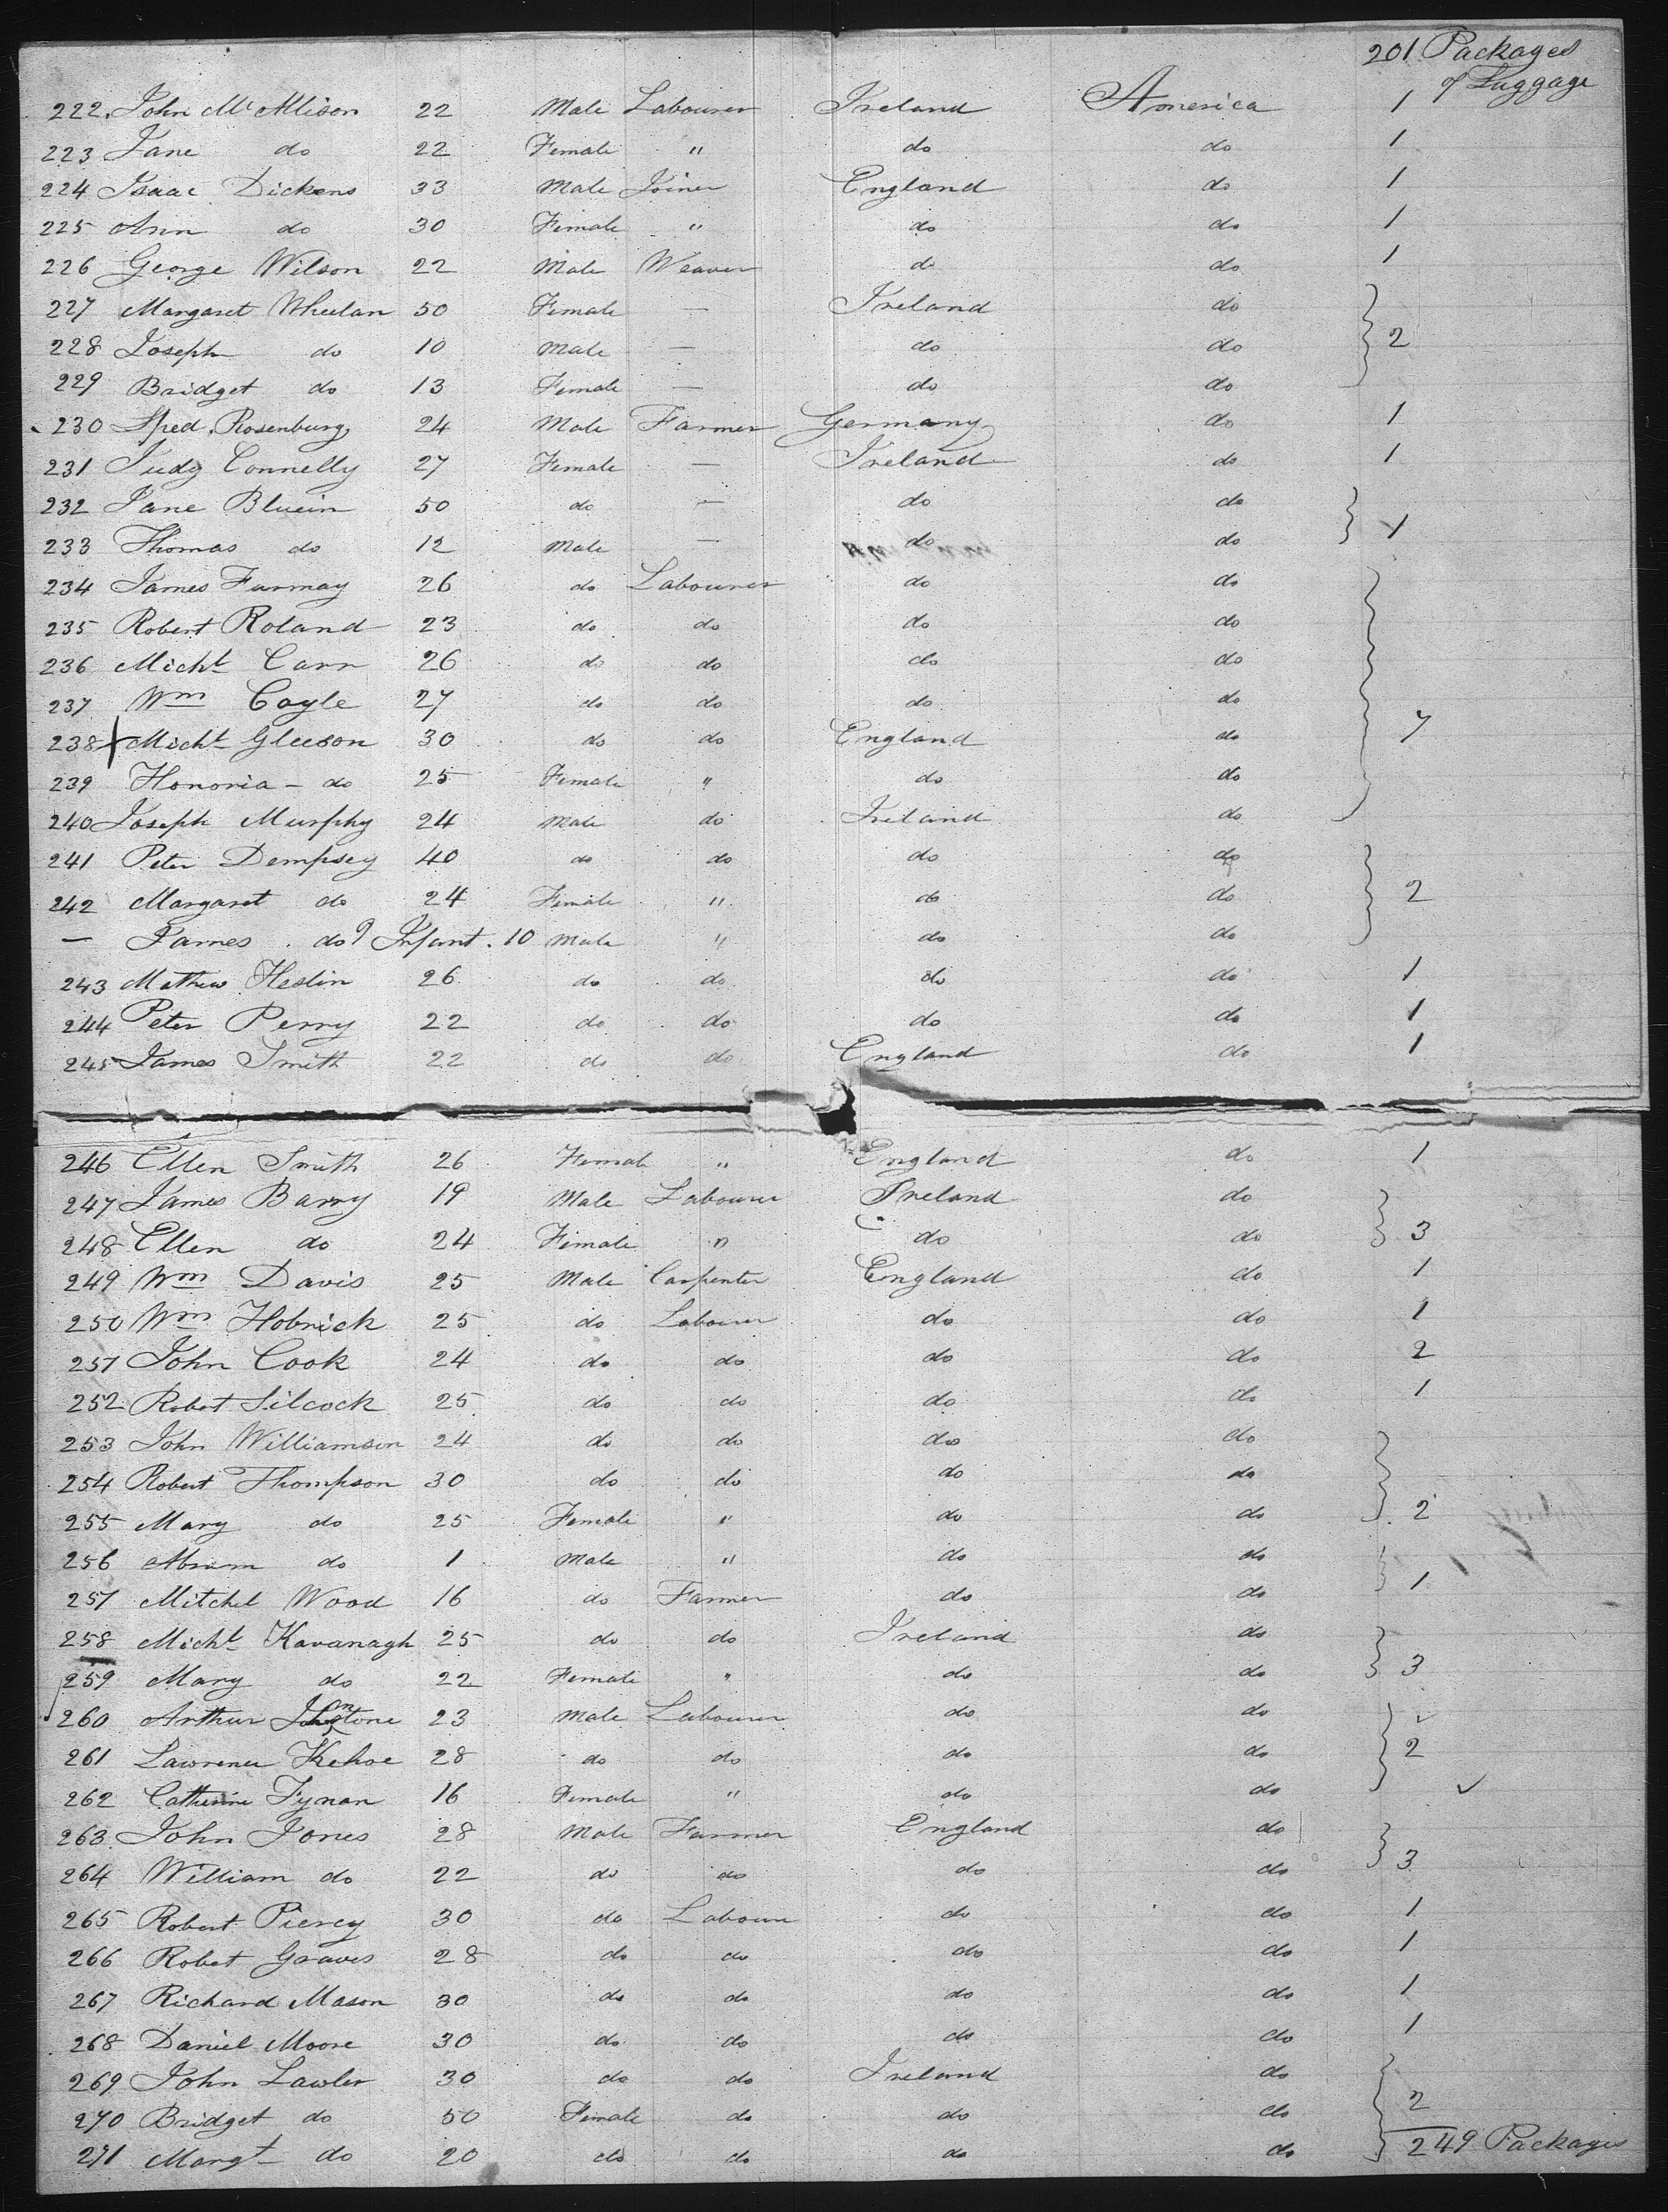 201 Packages
of Luggage
222. John McAllison 22 Male Labourer Ireland America 1
223 Jane do 22 Female " do do 1
224 Isaac Dickens 33 Male Joiner England do 1
225 Ann do 30 Female " do do 1
226 George Wilson 22 Male Weaver do do 1
227 Margaret Wheelan 50 Female — Ireland do
228 Joseph do 10 Male — do do 2
229 Bridget do 13 Female — do do
230 Rosenburg 24 Male Farmer Germany do 1
231 Judy Connelly 27 Female — Ireland do 1
232 Jane 50 do — do do
233 Thomas do 12 Male — do do 1
234 James 26 do Labourer do do
235 Robert Roland 23 do do do do
236 Michl Carr 26 do do do do
237 Wm Coyle 27 do do do do
238 Michl Gleeson 30 do do England do 7
239 Honoria - do 25 Female " do do
240 Joseph Murphy 24 Male do Ireland do
241 Peter Dempsey 40 do do do do
242 Margaret do 24 Female " do do 2
— James do Infant. 10 Male " do do
243 Mathew Heslin 26 do do do do 1
244 Peter Perry 22 do do do do 1
245 James Smith 22 do do England do 1
246 Ellen Smith 26 Female " England do 1
247 James Barry 19 Male Labourer Ireland do
248 Ellen do 24 Female " do do 3
249 Wm Davis 25 Male Carpenter England do 1
250 Wm Hobrick 25 do Labourer do do 1
251 John Cook 24 do do do do 2
252 Robert Silcock 25 do do do do 1
253 John Williamson 24 do do do do
254 Robert Thompson 30 do do do do
255 Mary do 25 Female " do do 2
256 Abram do 1 Male " do do
257 Mitchel Wood 16 do Farmer do do 1
258 Michl Kavanagh 25 do do Ireland do
259 Mary do 22 Female " do do 3
260 Arthur 23 Male Labourer do do
261 Lawrence Kehoe 28 do do do do 2
262 Catherine Fynan 16 Female " do do
263 John Jones 28 Male Farmer England do
264 William do 22 do do do do 3
265 Robert Piercy 30 do Labourer do do 1
266 Robert Graves 28 do do do do 1
267 Richard Mason 30 do do do do 1
268 Daniel Moore 30 do do do do 1
269 John Lawler 30 do do Ireland do
270 Bridget do 50 Female do do do 2
271 Margt do 20 do do do do 249 Packages